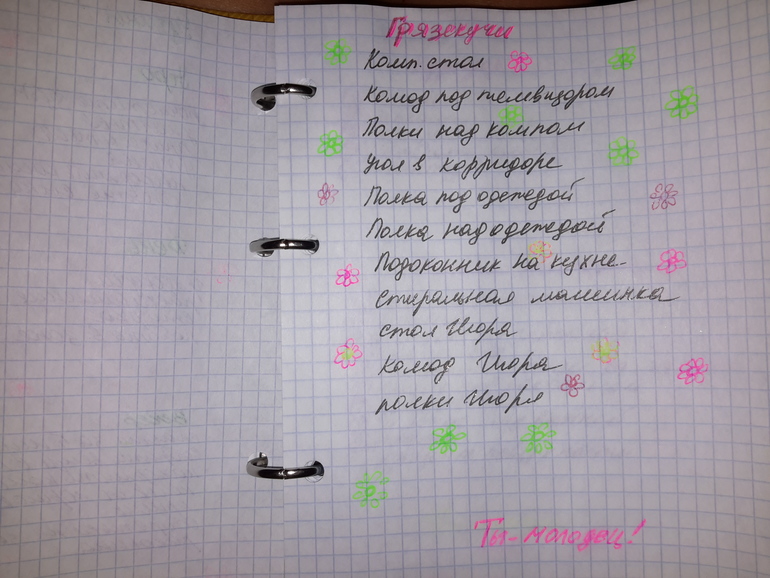 Грязскучи
Комп. стол
Комод под телевизором
Полки над компом
угол в корридоре
Полка под одеждой
Полка над одеждой
Подоконник на кухне
стиральная машинка
стол Игоря
комод Игоря
полки Игоря
Ты - молодец!